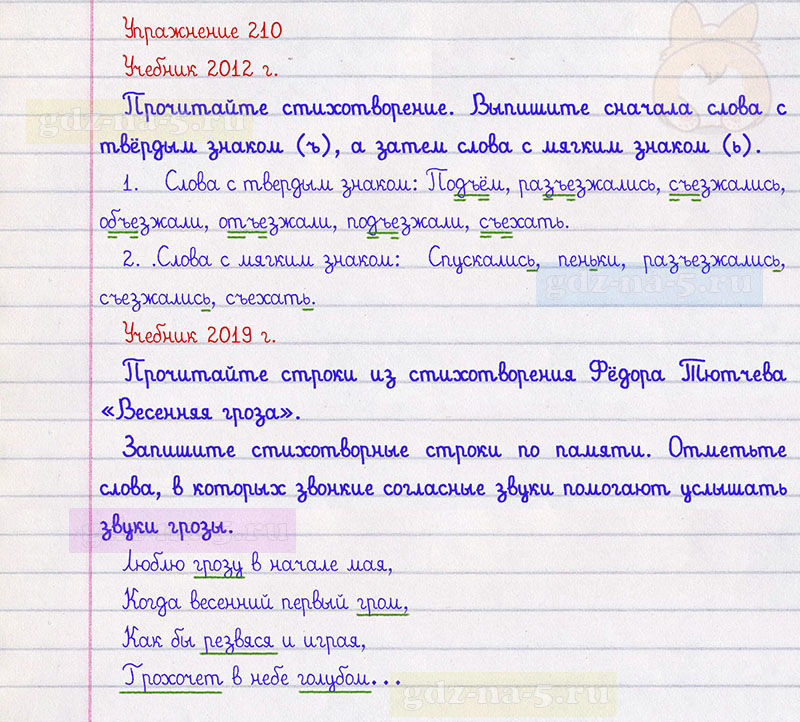 Упражнение 210
Учебник 2012 г.
Прочитайте стихотворение. Выпишите сначала слова с
gdz-na-5.ru
твёрдым знаком (ъ), а затем слова с мягким знаком (ь).
1. Слова с твердым знаком: Подъём, разъезжались, съезжались,
объезжали, отъезжали, подъезжали, съехать.
2. .Слова с мягким знаком: Спускались, пеньки, разъезжались,
gdz-na-5.ru
съезжались, съехать.
Учебник 2019 г.
Прочитайте строки из стихотворения Фёдора Тютчева
«Весенняя гроза».
Запишите стихотворные строки по памяти. Отметьте
слова, в которых звонкие согласные звуки помогают услышать
звуки грозы.
gdz-na-5.ru
Люблю грозу в начале мая,
Когда весенний первый гром,
Как бы резвяся и играя,
Грохочет в небе голубом...
gdz-na-5.ru